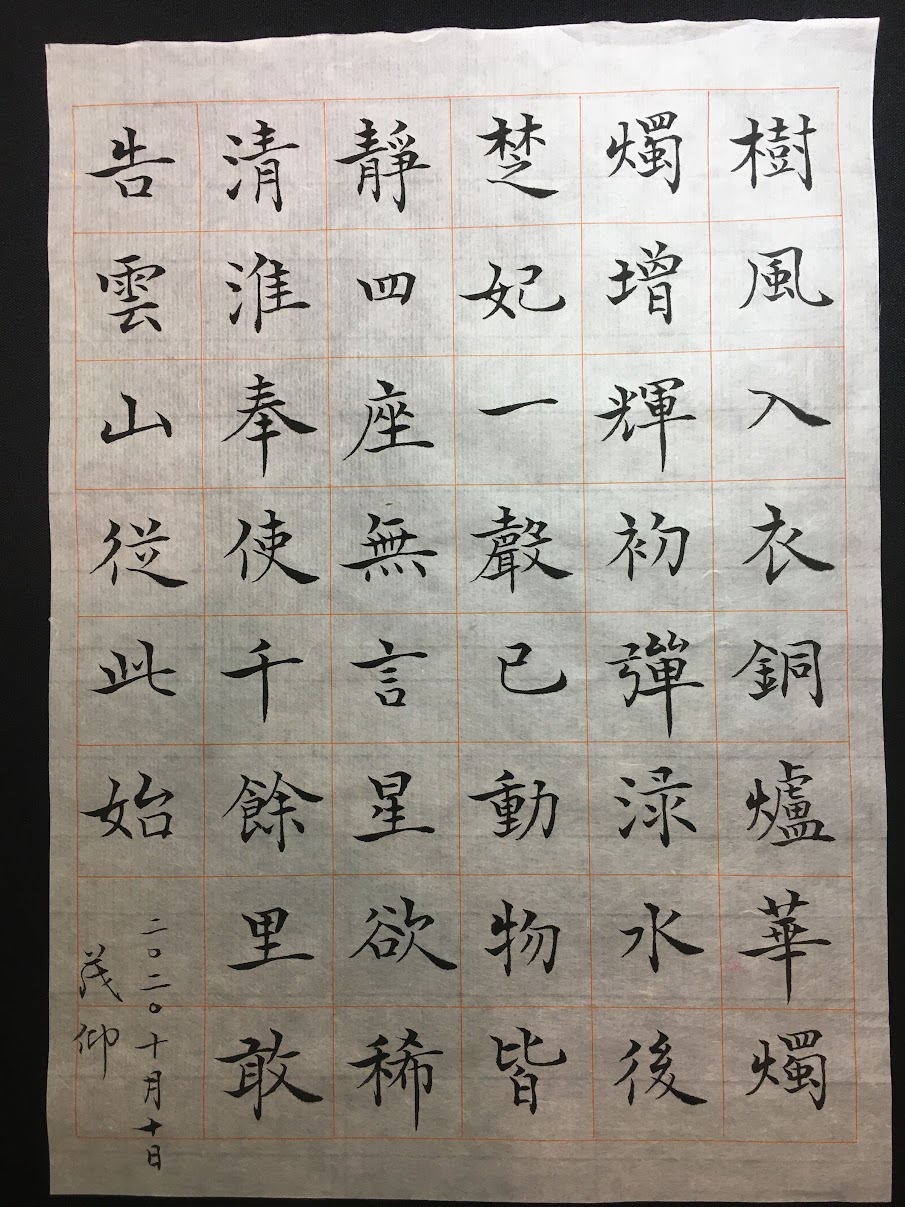 樹風入衣銅爐華燭
燭增輝初彈淥水後
楚妃一聲已動物皆
靜四座無言星欲稀
清淮奉使千餘里敢
告雲山從此始
二〇二〇十月十日
茂仰